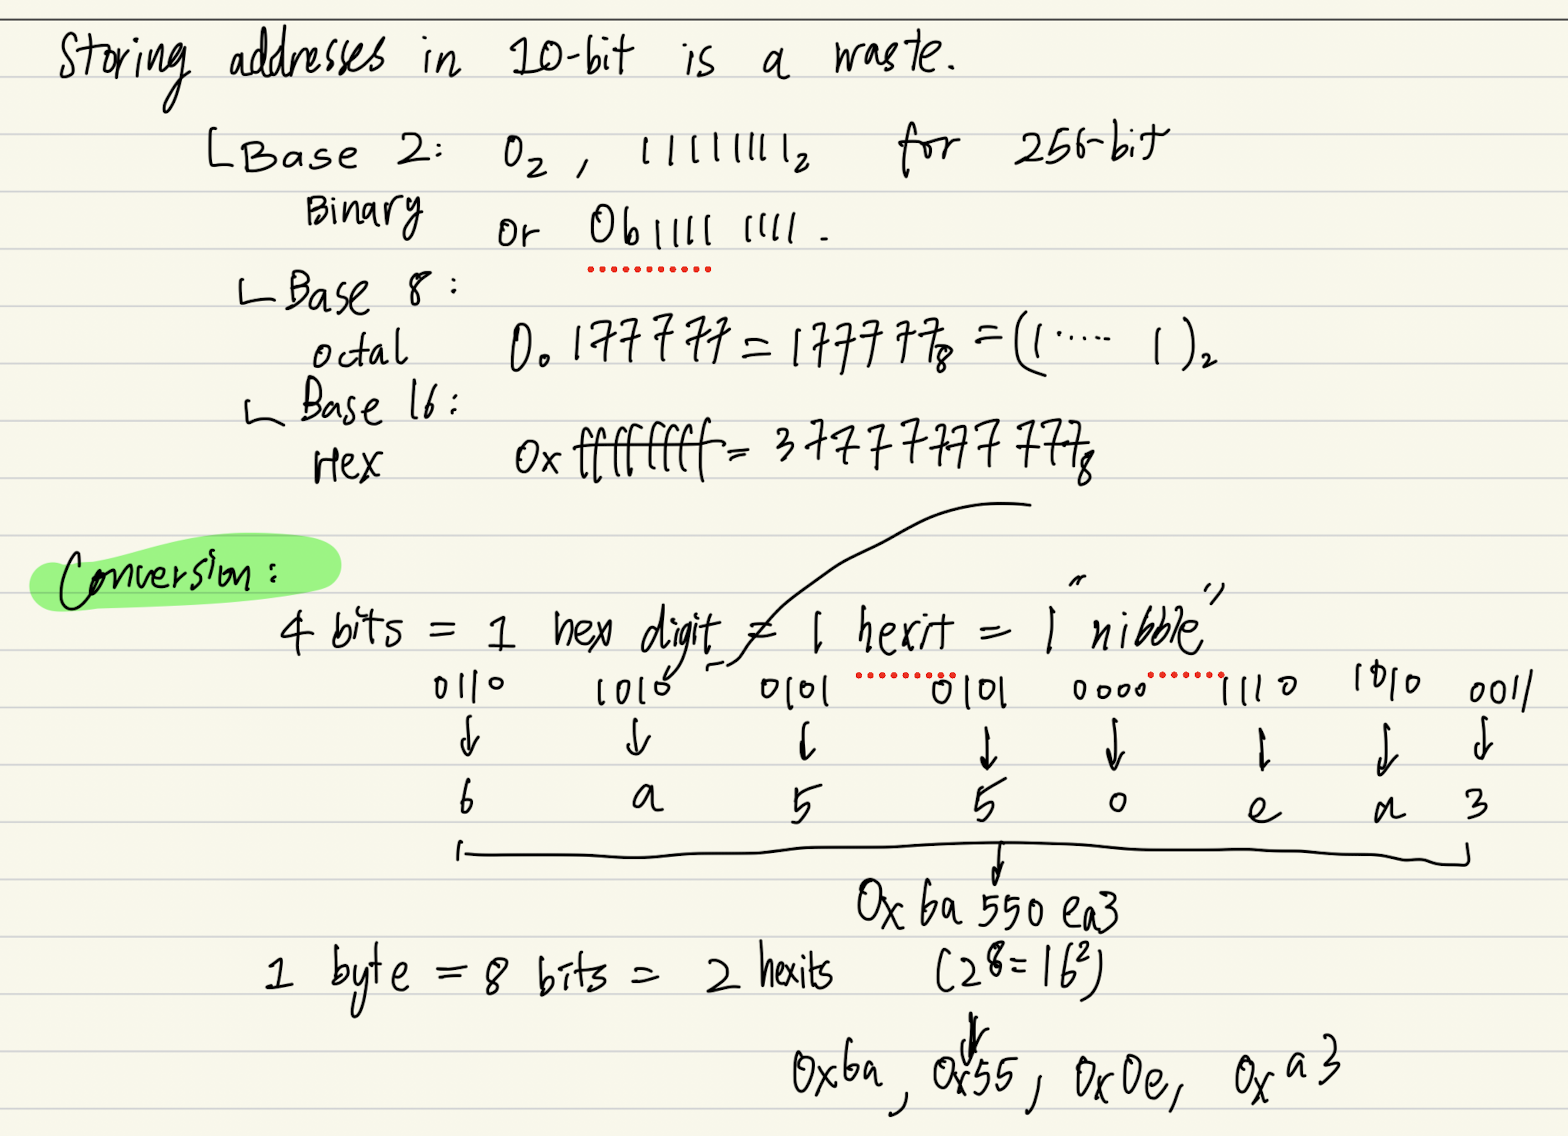 Storing addresses in 10-bit is a waste.
Base 2: 0₂ , 11111111₂ for 256-bit
Binary or 0b1111 1111.
Base 8:
octal 0o177777 = 177777₈ = (1····· 1)₂
Base 16:
Hex 0xffffffff = 37777777777₈
Conversion:
4 bits = 1 hex digit = 1 hexit = 1 "nibble"
0110 1010 0101 0101 0000 1110 1010 0011
↓ ↓ ↓ ↓ ↓ ↓ ↓ ↓
6 a 5 5 0 e a 3
0x6a550ea3
1 byte = 8 bits = 2 hexits (2⁸=16²)
0x6a, 0x55, 0x0e, 0xa3